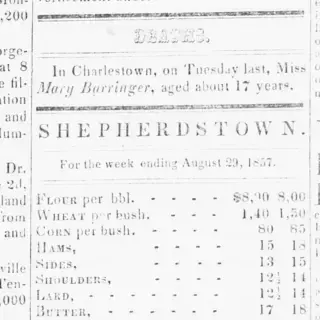 ,200
orge-
at 8
e fil-
ation
and
Ium-
Dr.
2d,
land
from
and
ville
Ten-
,000
DEATHS.
In Charlestown, on Tuesday last, Miss
Mary Barringer, aged about 17 years.
SHEPHERDSTOWN.
For the week ending August 29, 1857.
FLOUR per bbl. - - - - $8,00 8,00
WHEAT per bush. - - - - 1,40 1,50
CORN per bush. - - - - 80 85
HAMS, - - - - 15 18
SIDES, - - - - 13 15
SHOULDERS, - - - - 12½ 14
LARD, - - - - - - 12½ 14
BUTTER, - - - - - 17 18